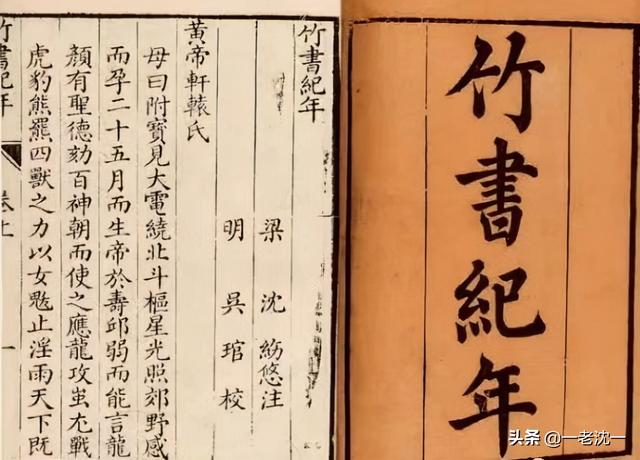 竹書紀年
竹書紀年
梁 沈 悠注
明 吳 琯 校
黃帝軒轅氏
母曰附寶見大電繞北斗樞星光照郊野感
而孕二十五月而生帝於壽邱弱而能言龍
顏有聖德劾百神朝而使之應龍攻蚩尤戰
虎豹熊羆四獸之力以女魃止淫雨天下既
竹書紀年 卷上 一
头条 @一老沈一